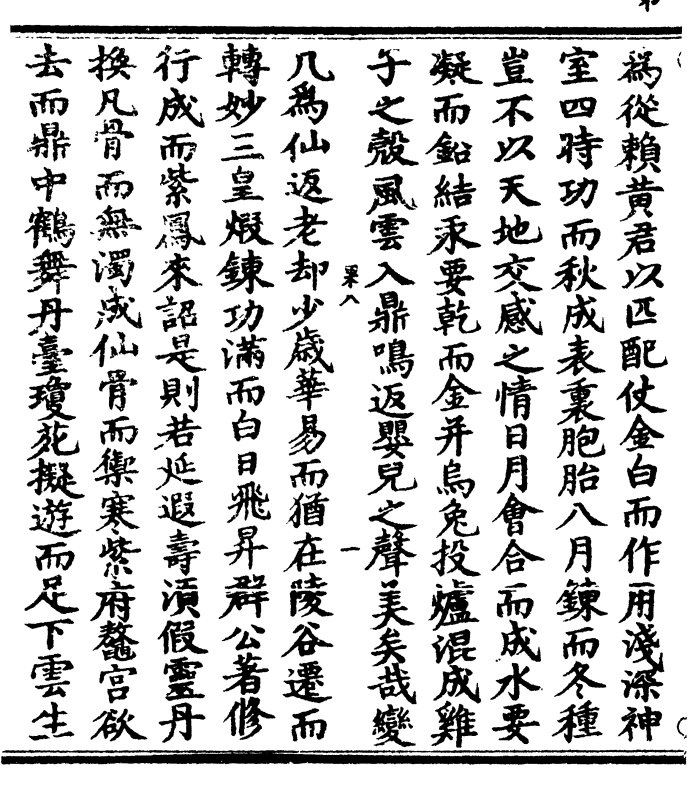 為從賴黃君以匹配仗金白而作用淺深神
室四時功而秋成表裏胞胎八月鍊而冬種
豈不以天地交感之情日月會合而成水要
凝而鉛結汞要乾而金并烏兔投爐混成雞
子之殼風雲入鼎鳴返嬰兒之聲美矣哉變
果八 一
凡為仙返老却少歲華易而猶在陵谷遷而
轉妙三皇煆鍊功滿而白日飛昇群公著脩
行成而紫鳳來詔是則若延遐壽須假靈丹
換凡骨而無濁成仙骨而禦寒紫府鼇宫欲
去而鼎中鶴舞丹臺瓊苑擬遊而足下雲生